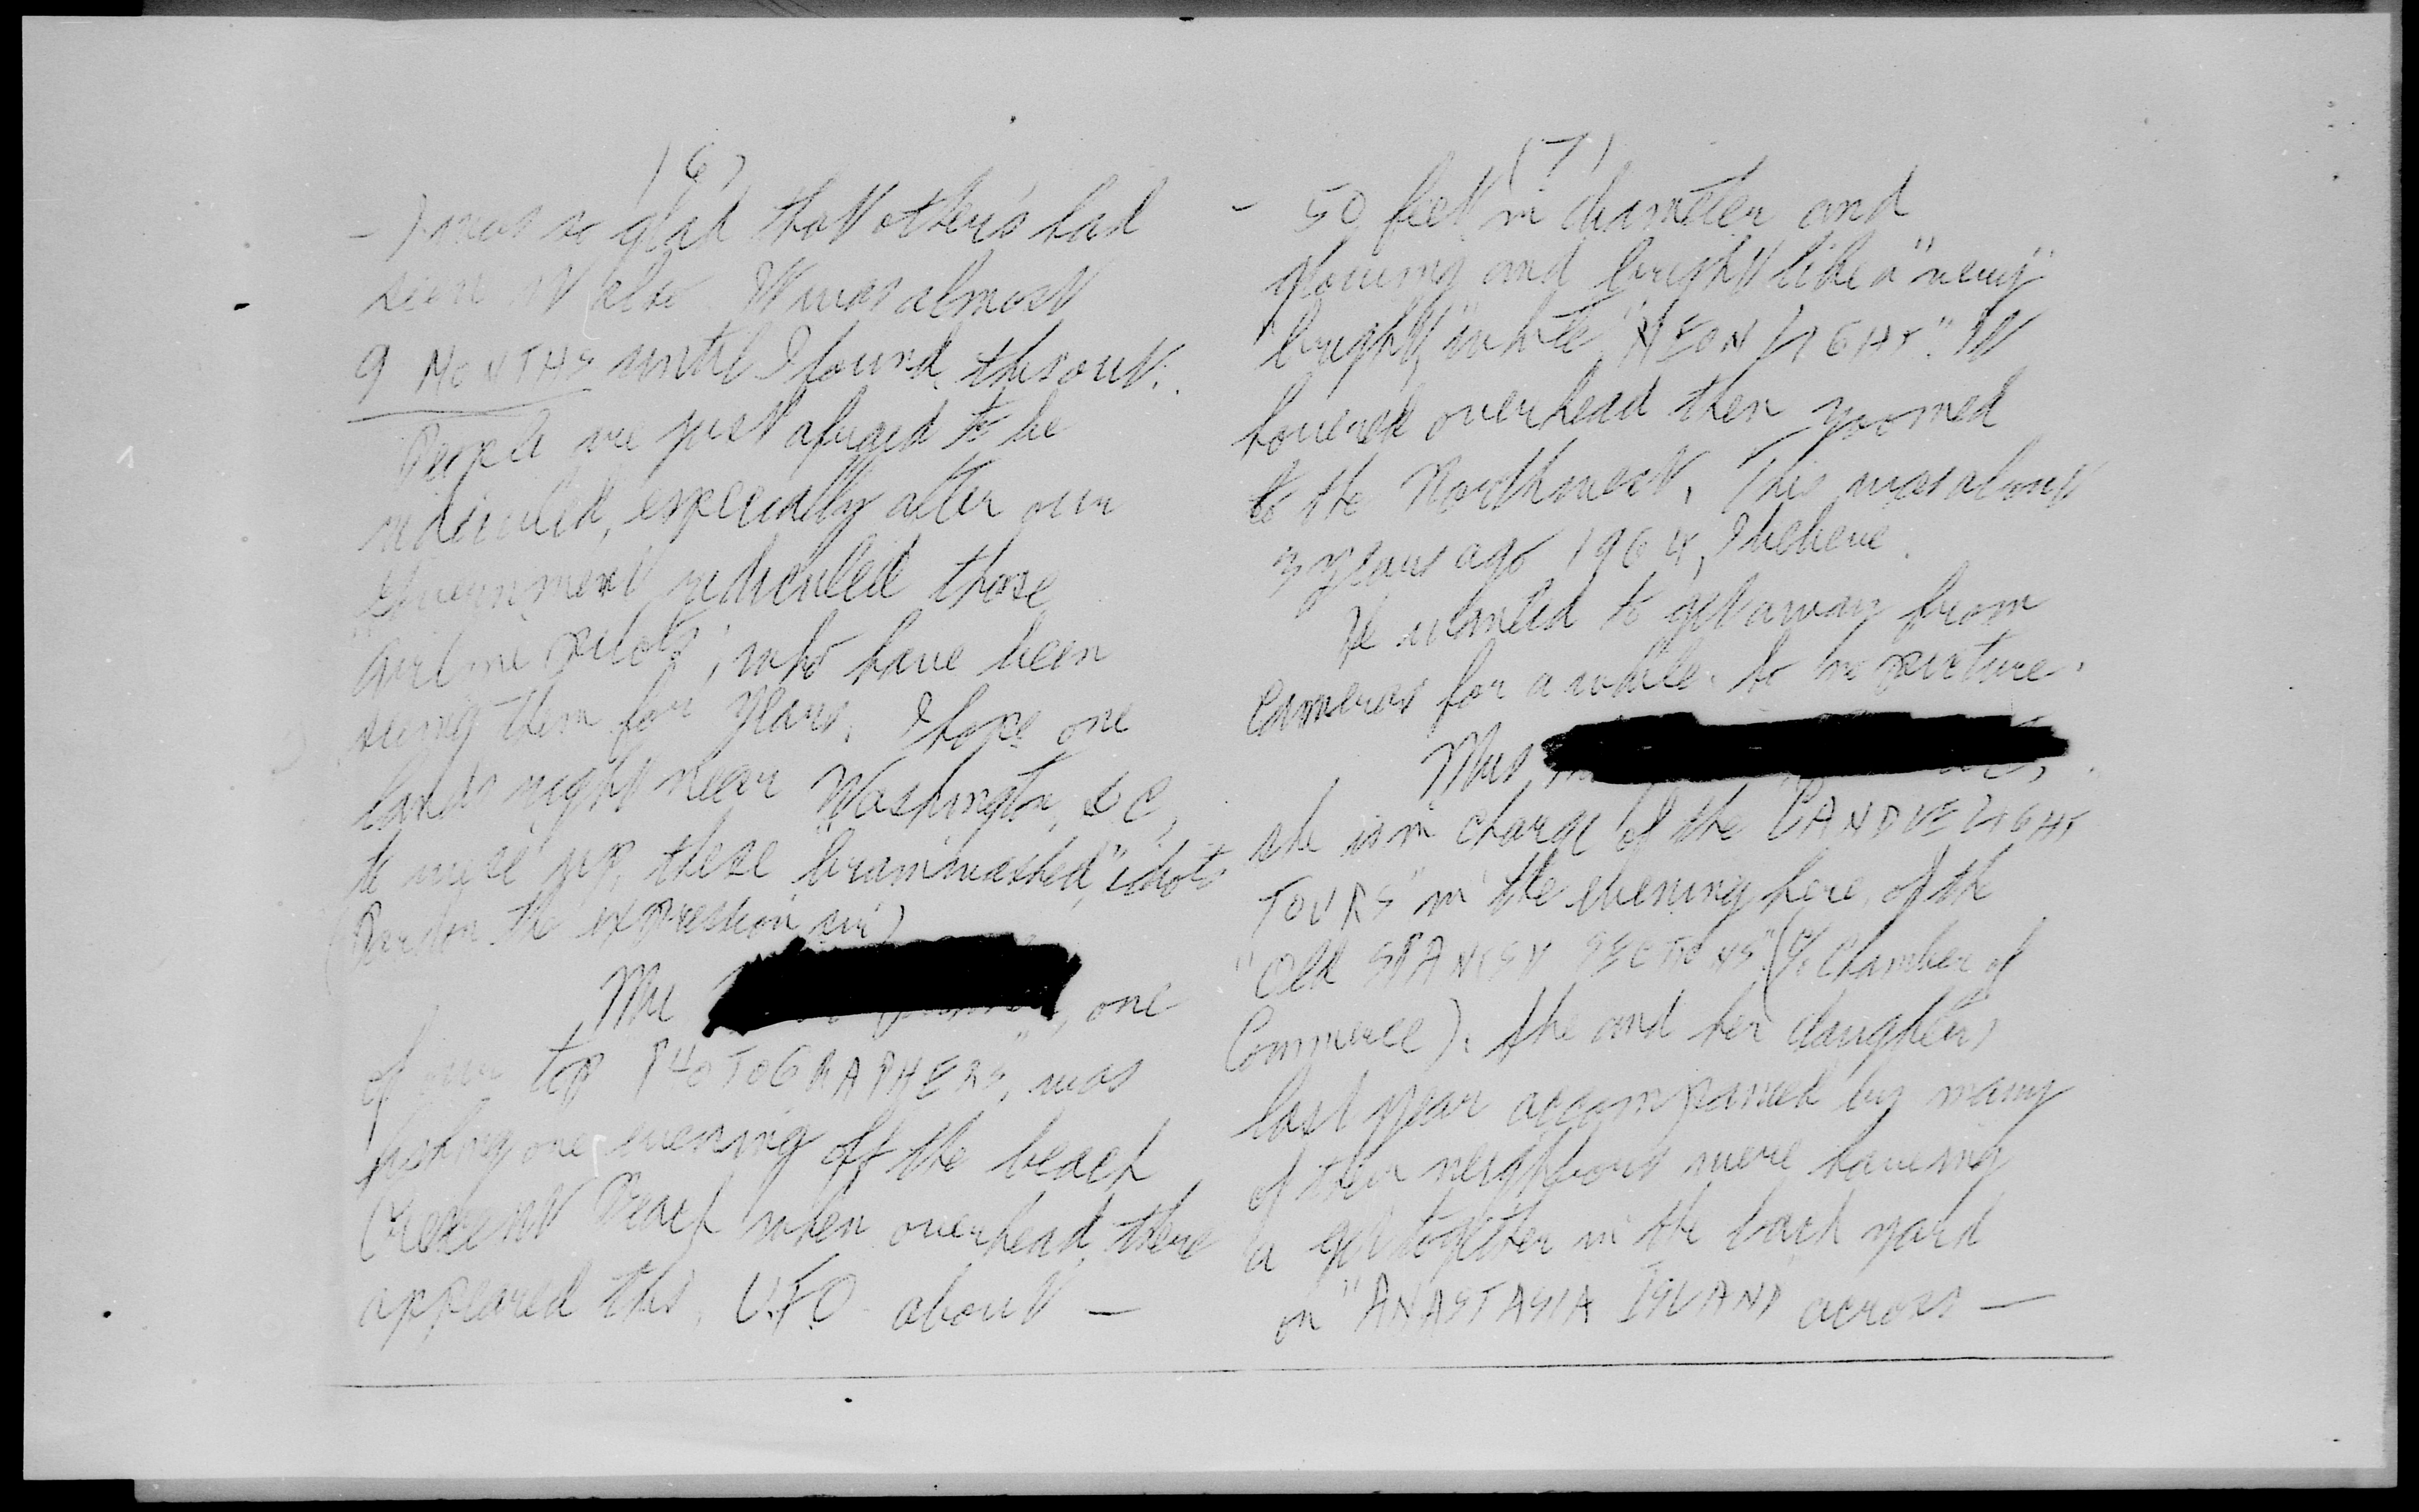 (6)
- I was so glad that other's had
seen it also. It was almost
9 MONTHS until I found this out.
People are just afraid to be
ridiculed, especially after our
Government ridiculed those
"airline pilots", who have been
seeing them for years. I hope one
lands right near Washington, D.C,
to wise up, these "brainwashed" idiots
(Pardon the expression sir)
Mr , one
of our top PHOTOGRAPHERS, was
fishing one evening off the beach
Crescent Beach when overhead there
appeared this, U.F.O about —
(7)
- 50 feet in diameter and
glowing and bright like a "very"
"bright," white "NEON LIGHT". It
hovered overhead then zoomed
to the Northwest. This was about
3 years ago 1964, I believe.
He wanted to get away from
cameras for a while. So no picture.
Mrs.
she is in charge of the "CANDLELIGHT
TOURS" in the evening here, of the
"Old SPANISH SECTIONS" (% Chamber of
Commerce). She and her daughters
last year accompanied by many
of their neighbors were haveing
a get together in the back yard
on "ANASTASIA ISLAND" across —